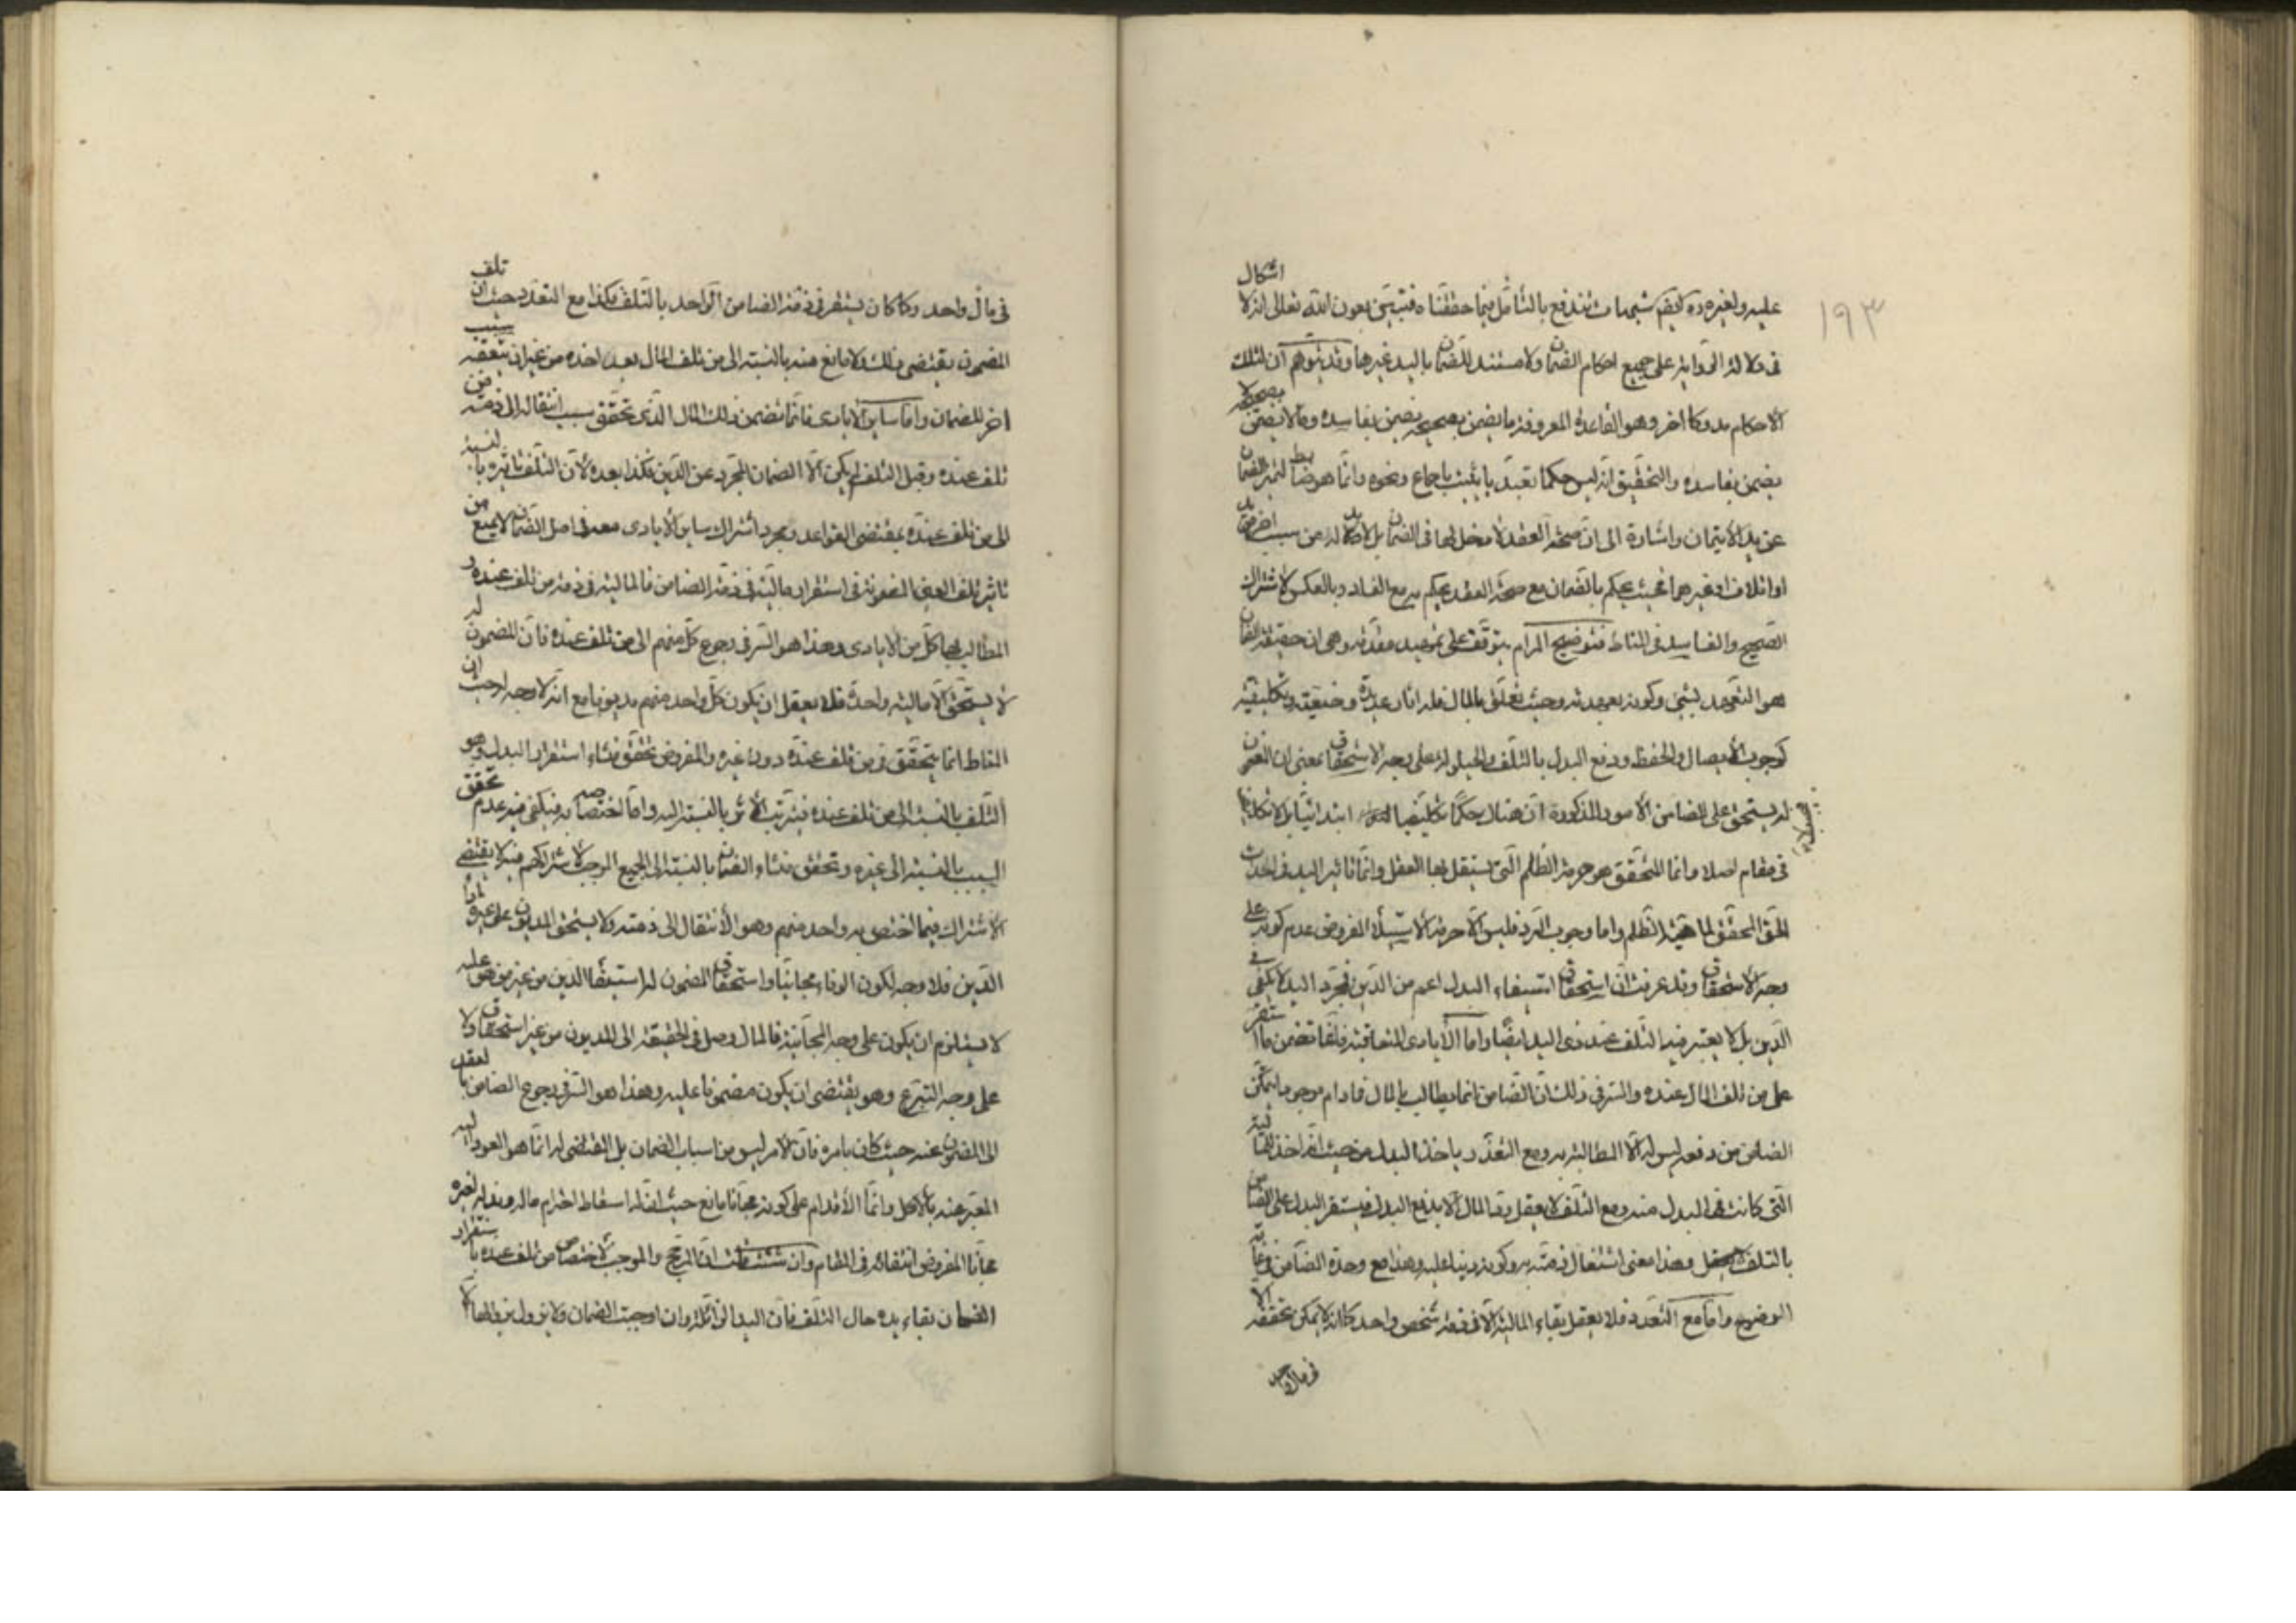 ١٩٣
عليه ولغيره ده شبهات تندفع بالتأمل فيما حققناه فتبين بعون الله تعالى انه لا اشكال
فى دلالة الرواية على جميع احكام الضمان ولا مستند للضمان باليد غيرها وقد يتوهم ان لتلك
الاحكام مدركا اخر وهو القاعدة المعروفة ما يضمن بصحيحه يضمن بفاسده وما لا يضمن بصحيحه لا
يضمن بفاسده والتحقيق انه ليس حكما تعبديا يثبت باجماع ونحوه وانما هو ضابط لتميز الضمان
عن يد الايتمان واشارة الى ان صحة العقد لا مدخل لها فى الضمان بل لا بد له من سبب اخر من يد
او اتلاف او غيرهما فحيث يحكم بالضمان مع صحة العقد يحكم به مع الفساد وبالعكس لاشتراك
الصحيح والفاسد فى المناط فتوضيح المرام يتوقف على تمهيد مقدمة وهى ان حقيقة الضمان
هو التعهد بشئ وكونه بعهدته وحيث تعلق بالمال فله اثار عديدة وضعية وتكليفية
كوجوب الايصال والحفظ ودفع البدل بالتلف والحيلولة على وجه الاستحقاق بمعنى ان المضمون
له يستحق على الضامن الامور المذكورة لا ان هناك حكما تكليفيا ابتدائيا
فى مقام اصلا وانما المتحقق هو حرمة الظلم التى يستقل بها العقل وانما تاثير اليد فى احداث
الحق المحقق لماهية الظلم واما وجوب الرد فليس الا حرمة الاستيلاء المفروض عدم كونه على
وجه الاستحقاق وقد عرفت ان استحقاق استيفاء البدل اعم من الدين فمجرد اليد لا يكفى فى
الدين بل لا يعتبر فيه التلف عند ذى اليد ايضا واما الايادى المتعاقبة فكلها تضمن ما استقر
على من تلف المال عنده والسر فى ذلك ان الضامن انما يطالب بالمال فما دام موجودا يتمكن
الضامن من دفعه ليس له الا المطالبة به ومع التعذر ياخذ البدل من حيث انه اخذ للمالية
التى كانت فى المبدل منه ومع التلف لا يعقل رد المال الا بدفع البدل فيستقر البدل على الضامن
بالتلف وهذا معنى اشتغال ذمته به وكونه دينا عليه وهذا مع وحدة الضامن فى غاية
الوضوح واما مع التعدد فلا يعقل بقاء المالية الا فى ذمة شخص واحد كما انه لا يمكن تحققه الا
فى مال واحد
فى مال واحد وكما كان يستقر فى ذمة الضامن الواحد بالتلف فكذا مع التعدد حيث ان تلف
المضمون يقتضى ذلك ولا مانع منه بالنسبة الى من تلف المال بيده اخذه من غير ان يتعقبه سبب
اخر للضمان واما ساير الايادى فانما تضمن ذلك المال الذى تحقق سبب انتقاله الى ذمة من
تلف عنده وقبل التلف لم يكن الا الضمان المجرد عن الدين فكذا بعده لان التلف تاثيره بالنسبة
الى من تلف عنده بمقتضى القواعد ومجرد اشتراك ساير الايادى معه فى اصل الضمان لا يمنع من
تاثير تلف العين المضمونة فى استقرار ماليته فى ذمة الضامن فالمالية فى ذمة من تلف عنده و
المطالب بها كل من الايادى وهذا هو السر فى رجوع كل منهم الى من تلف عنده فان المضمون له
لا يستحق الا مالية واحدة فلا يعقل ان يكون كل واحد منهم مديونا مع انه لا وجه له حيث ان
المناط انما يتحقق فى من تلف عنده دون غيره والمفروض تحقق منشاء استقرار البدل وهو
التلف بالنسبة الى من تلف عنده فيترتب الاثر بالنسبة اليه واما اختصاصه به فيكفى فيه عدم تحقق
السبب بالنسبة الى غيره وتحقق منشاء الضمان بالنسبة الى الجميع الموجب لاشتراكهم فيه لا يقتضى
الاشتراك فيما اختص به واحد منهم وهو الانتقال الى ذمته ولا يستحق المديون على غيره اداء
الدين فلا وجه لكون الوفاء مجانيا واستحقاق المضمون له استيفاء الدين من غير من هو عليه
لا يستلزم ان يكون على وجه المجانية فالمال وصل فى الحقيقة الى المديون من غير استحقاق ولا
على وجه التبرع وهو يقتضى ان يكون مضمونا عليه وهذا هو السر فى رجوع الضامن بالعقد
الى المضمون عنه حيث كان بامره فان الامر ليس من اسباب الضمان بل المقتضى له انما هو العود اليه
المعبر عنه بالاكل وانما الاقدام على كونه مجانا مانع حيث ان له اسقاط احترام ماله وبذله لغيره
مجانا المفروض انتفائه فى المقام وان شئت قلت ان المرجح والموجب لاختصاص من تلف عنده باستقرار
الضمان بقاء يده حال التلف فان اليد الزائلة وان اوجبت الضمان ولا يزول بزوالها الا